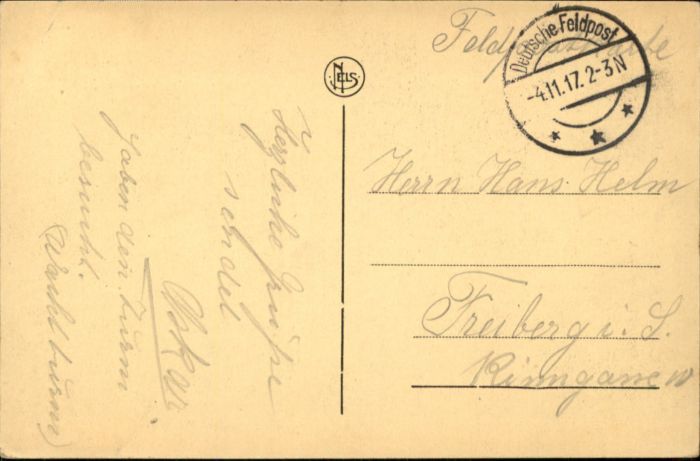 Feldpostkarte
Deutsche Feldpost
-4.11.17. 2-3N
NELS
Herrn Hans Helm
Freiberg i. S.
Herzliche Grüße
sendet
Oskar
haben den Turm
besucht.